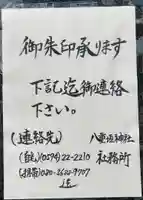 御朱印承ります
下記迄御連絡
下さい。
(連絡先) 八重垣神社
(自宅)(0574)22-2210 社務所
(携帯)080-2622-9707
迄